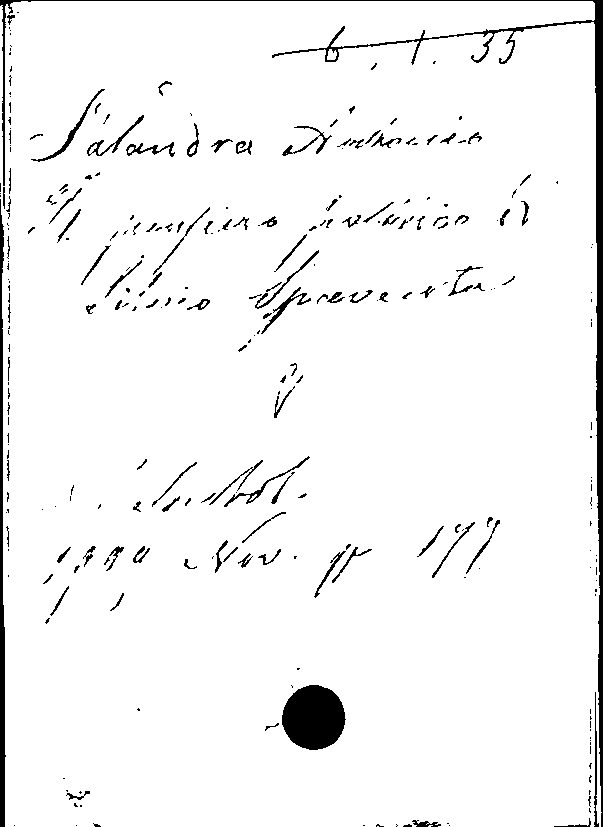 6.1.35
Salandra Antonio
Il pensiero politico di
Silvio Spaventa
N. Antol.
Nov. p 177